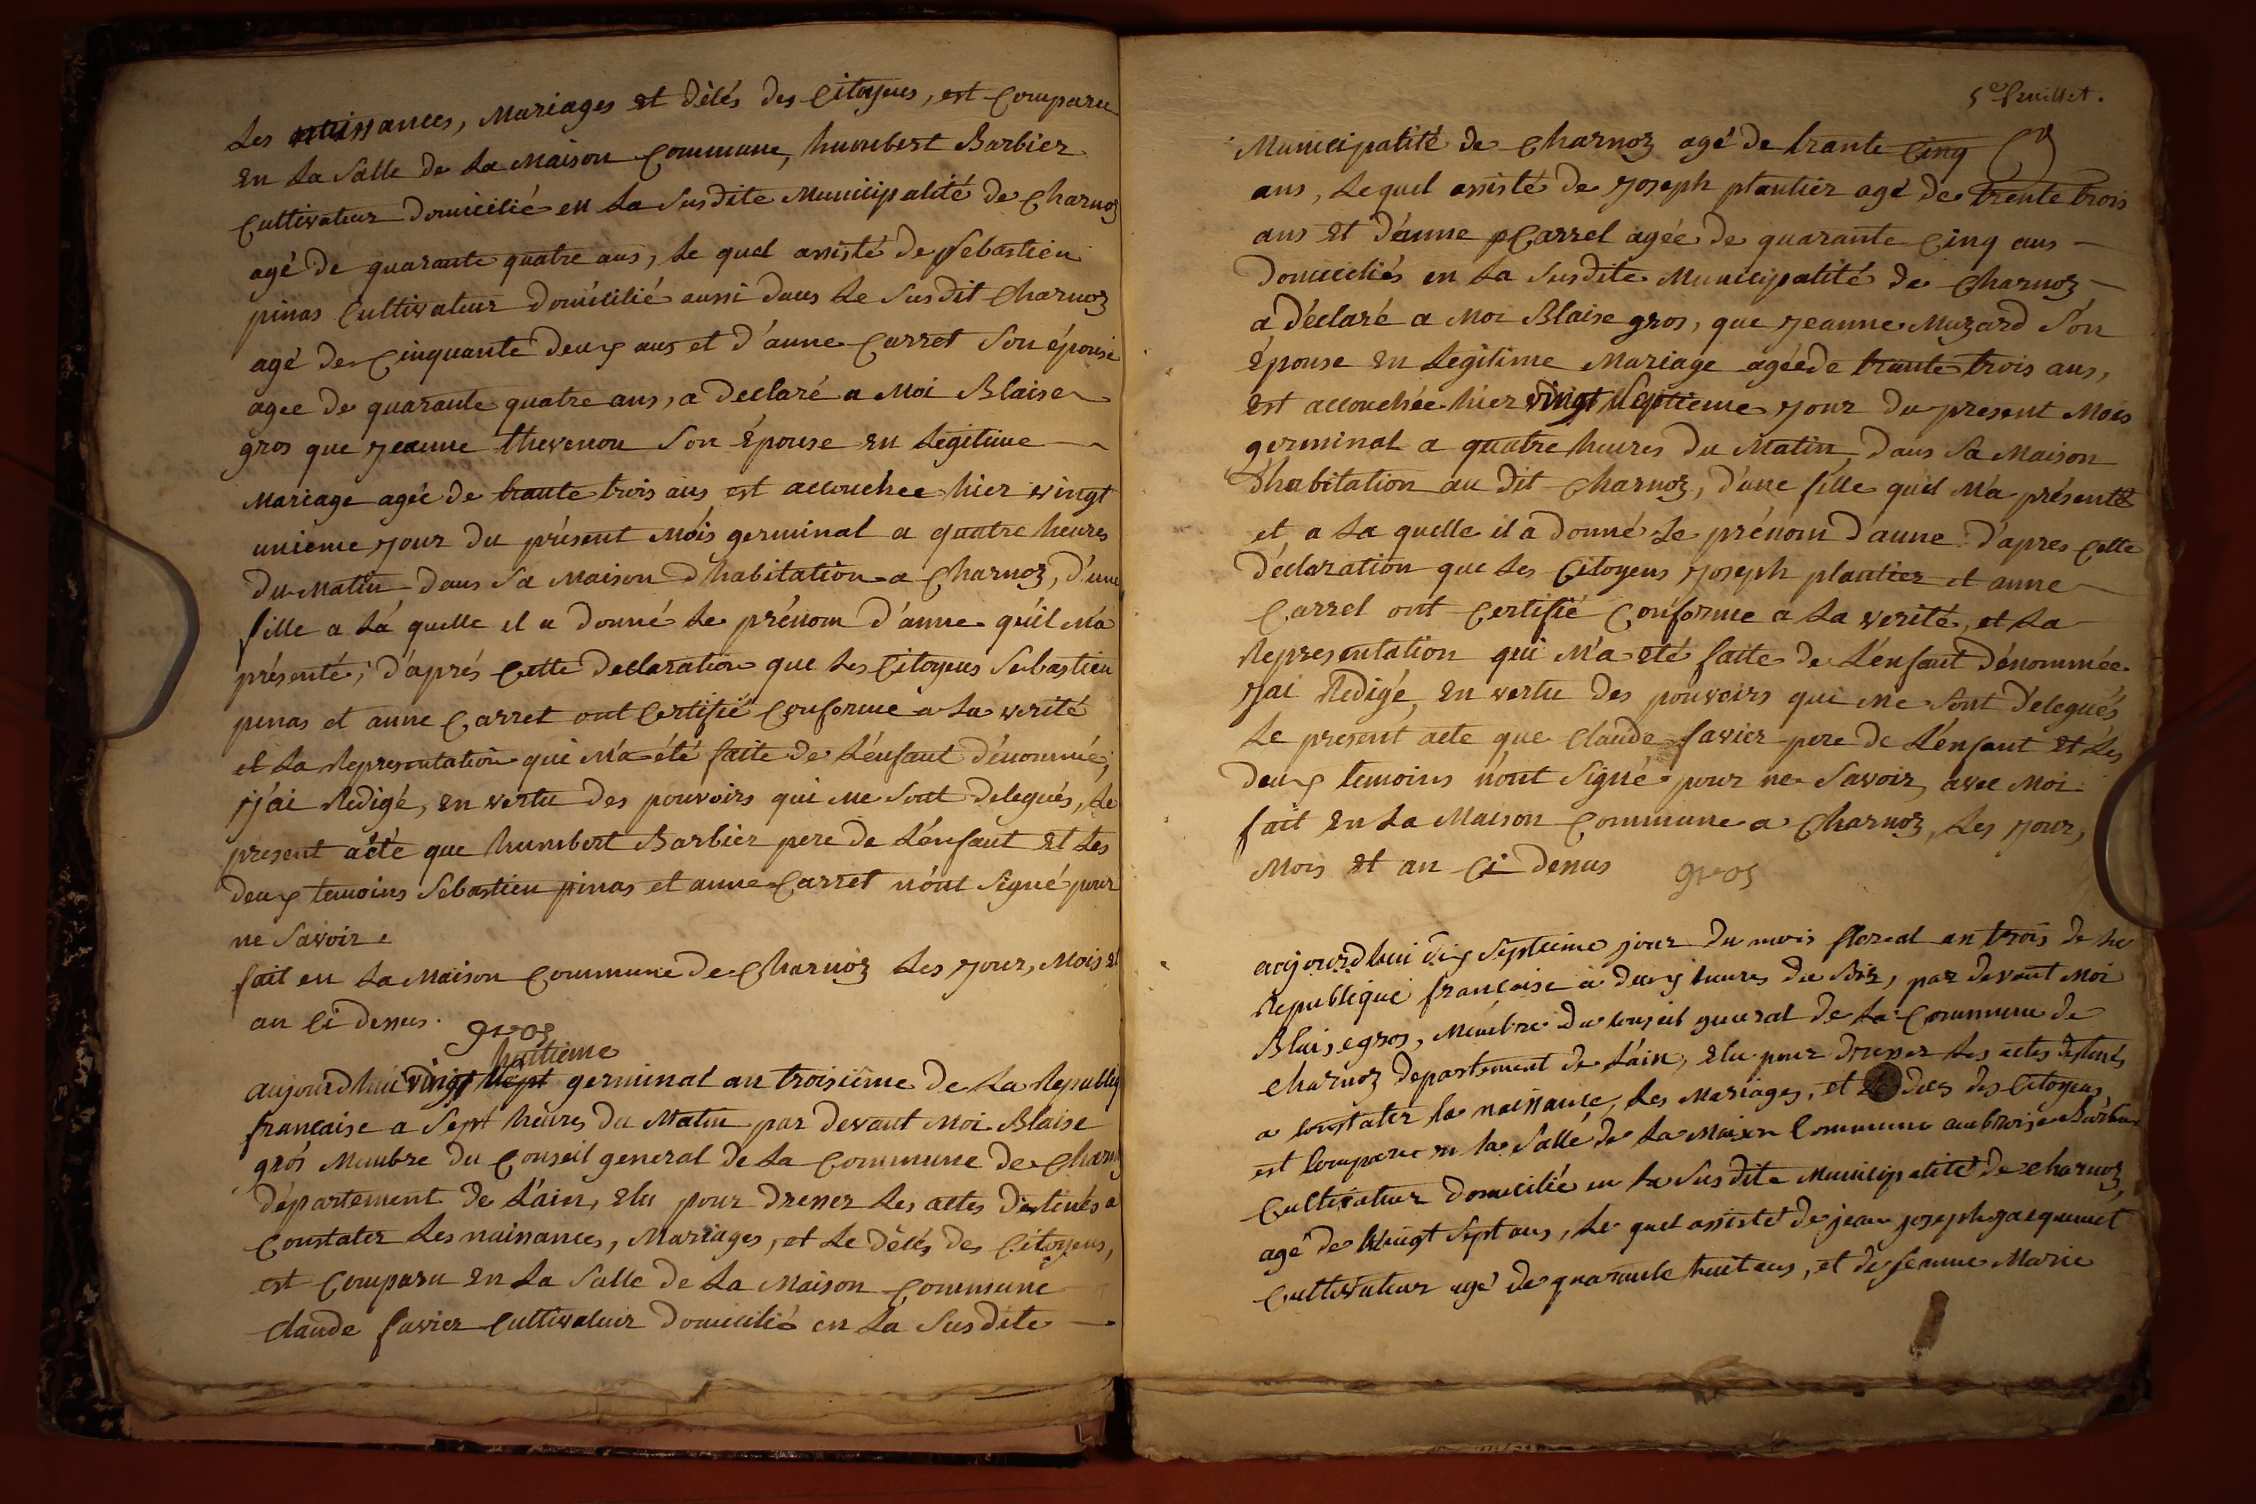 Les naissances, Mariages et délés des Citoyens, est Comparu
En La Salle de La Maison Commune, humbert Barbier
Cultivateur Domicilié en La Susdite Municipalité de Charnoz
agé de quarante quatre ans, Le quel assisté de Sebastien
pinas Cultivateur domicilié aussi dans Le Susdit Charnoz
agé de Cinquante deux ans et d'anne Carret Son épouse
agee de quarante quatre ans, a declaré a Moi Blaise
gros que jeanne thevenon Son Épouse en Légitime
Mariage agée de trante trois ans est accouchee hier vingt
unieme jour du présent Mois germinal a quatre heures
du Matin dans Sa Maison d'habitation a Charnoz, d'une
fille a La quelle il a donné Le prénom d'anne qu'il M'a
présenté, d'aprés Cette declaration que Les Citoyens Sebastien
pinas et anne Carret ont Certifié Conforme a La verité
et La Representation qui M'a été faite de L'enfant dénommé,
j'ai Redigé, en vertu des pouvoirs qui Me Sont delegués, Le
present acte que humbert Barbier pere de L'enfant et Les
deux temoins Sebastien pinas et anne Carret n'ont Signé pour
ne Savoir.
fait en La Maison Commune de Charnoz Les jour, Mois et
an Ci dessus.
gros
huitieme
aujourdhui vingt Sept germinal an troisième de La Republiq
francaise a Sept heures du Matin par devant Moi Blaise
gros Membre du Conseil general de La Commune de Charnoz
département de L'ain, elu pour dresser Les actes destinés a
Constater Les naissances, Mariages, et Le délés des Citoyens,
est Comparu en La Salle de La Maison Commune
Claude favier Cultivateur Domicilié en La Susdite
5e feuillet.
Municipalité de Charnoz agé de trante Cinq
ans, Le quel assisté de joseph plantier agé de trente trois
ans et d'anne Carrel agée de quarante Cinq ans
domiciliés en La Susdite Municipalité de Charnoz
a déclaré a Moi Blaise gros, que jeanne Muzard Son
Épouse en Legitime Mariage agée de trante trois ans,
est accouchée hier vingt Septieme jour du present Mois
germinal a quatre heures du Matin dans Sa Maison
d'habitation au dit Charnoz, d'une fille qu'il M'a présenté
et a La quelle il a donné Le prénom d'anne d'apres Cette
déclaration que Les Citoyens joseph plantier et anne
Carrel ont Certifié Conforme a La verité, et La
Representation qui M'a eté faite de L'enfant dénommée
j'ai Redigé, en vertu des pouvoirs qui Me Sont délegués
Le present acte que Claude favier pere de L'enfant et Les
deux temoins n'ont Signé pour ne Savoir, avec Moi
fait en La Maison Commune a Charnoz, Les jour,
Mois et an Ci dessus gros
aujourdhui dix Septieme jour du mois floreal an trois de la
Republique francaise a deux heures du Soir, par devant Moi
Blaise gros, Membre du Conseil general de La Commune de
Charnoz departement de L'ain, elu pour dresser Les actes destinés
a constater la naissance, Les Mariages, et déces des Citoyens
est Comparu en la Salle de La Maison Commune ambroise Barbier
Cultivateur domicilié en la Susdite Municipalité de Charnoz,
agé de vingt Sept ans, Le quel assisté de jean joseph jacquemet
Cultivateur agé de quarante huit ans, et de femme Marie